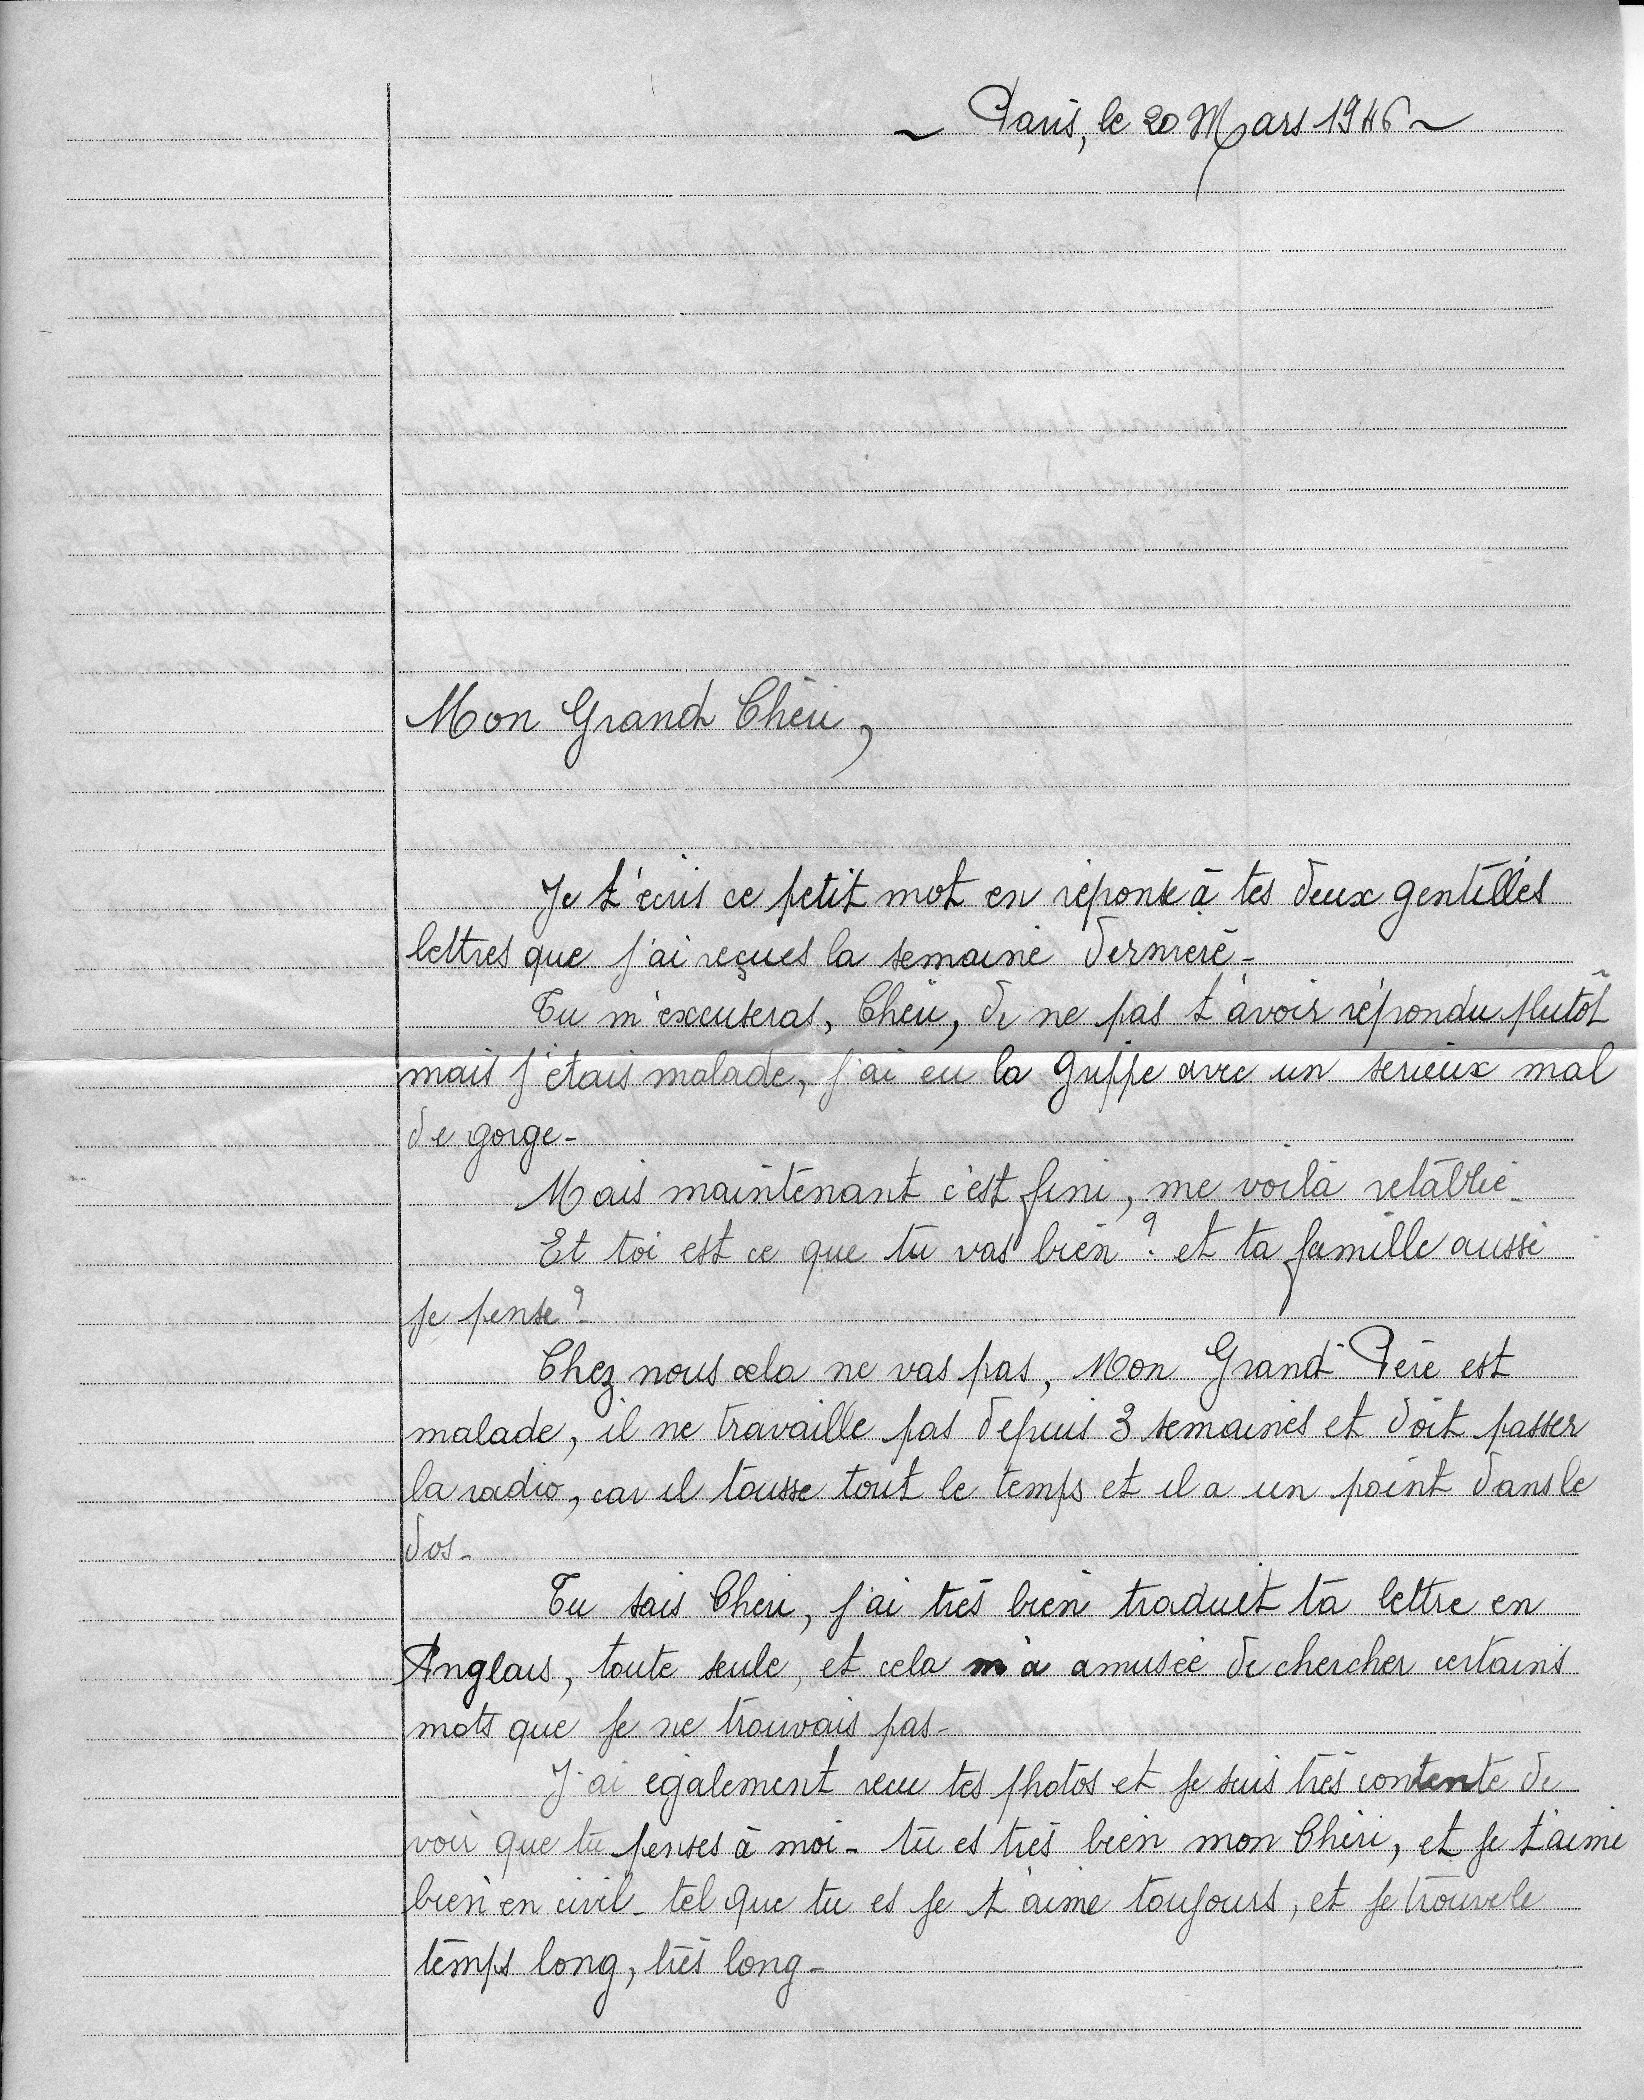 ~ Paris, le 20 Mars 1946 ~
Mon Grand Chéri,
Je t'écris ce petit mot en réponse à tes deux gentilles
lettres que j'ai reçues la semaine dernière -
Tu m'excuseras, Chéri, de ne pas t'avoir répondu plutôt
mais j'étais malade, j'ai eu la Grippe avec un sérieux mal
de gorge -
Mais maintenant c'est fini, me voilà rétablie -
Et toi est ce que tu vas bien ? et ta famille aussi
je pense ? -
Chez nous cela ne vas pas, Mon Grand-Père est
malade, il ne travaille pas depuis 3 semaines et doit passer
la radio, car il tousse tout le temps et il a un point dans le
dos -
Tu sais Chéri, j'ai très bien traduit ta lettre en
Anglais, toute seule, et cela m'a amusée de chercher certains
mots que je ne trouvais pas -
J'ai également recu tes photos et je suis très contente de
voir que tu penses à moi - tu es très bien mon Chéri, et je t'aime
bien en civil - tel que tu es je t'aime toujours, et je trouve le
temps long, très long -